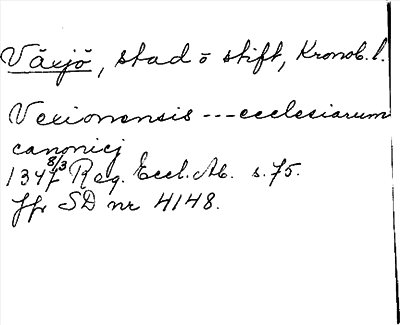 Växjö, stad o stift, Kronob. l.
Vexionensis --- ecclesiarum
canonicj
1347 8/3 Reg. Eccl. Ab. s. 75.
Jfr SD nr 4148.